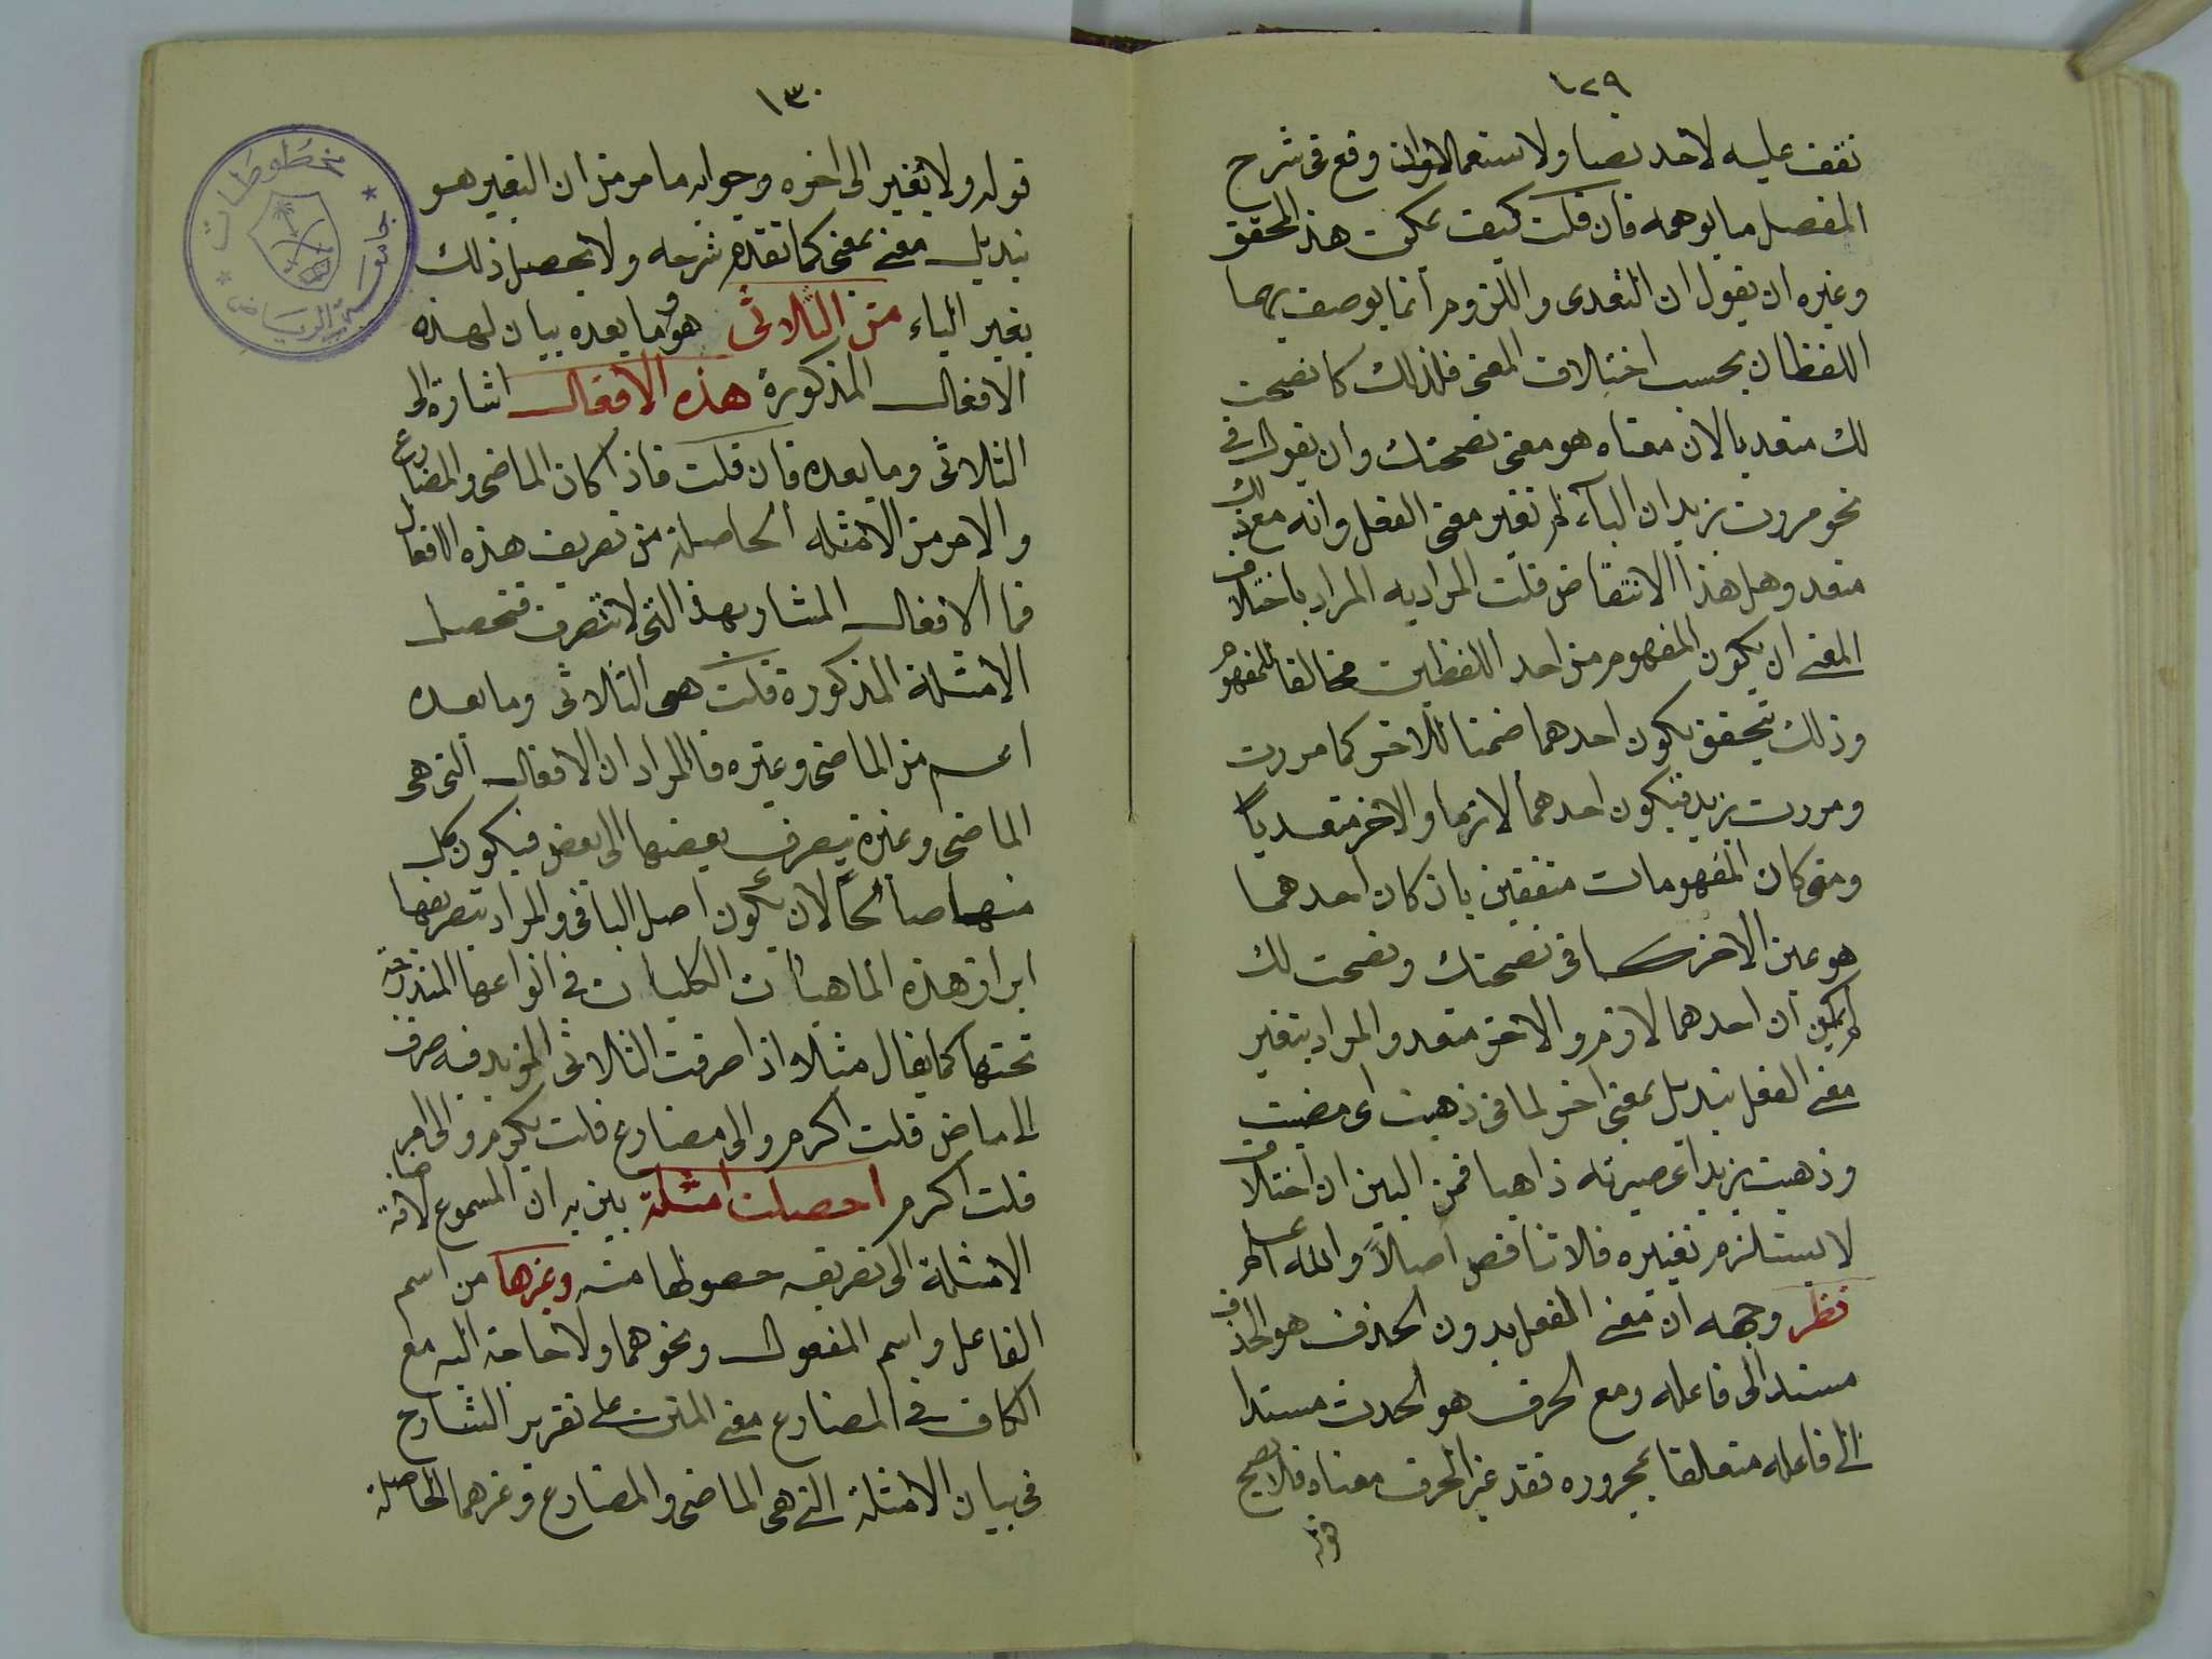 ١٢٩
نقف عليه لاحد نصا ولا استعمالا وان وقع في شرح
المفصل ما يوهمه فان قلت كيف يمكن هذا المحقق
وغيره ان يقول ان التعدى واللزوم انما يوصف بهما
اللفظان بحسب اختلاف المعنى فلذلك كا نصحت
لك متعديا لان معناه هو معنى نصحتك وان يقول في
نحو مررت بزيد ان الباء لم تغير معنى الفعل وانه مع ذلك
متعد وهل هذا الا انتقاض قلت المراد به المراد باختلاف
المعنى ان يكون المفهوم من احد اللفظين مخالفا للمفهوم
وذلك يتحقق بكون احدهما ضمنا للاخر كما مررت
ومررت بزيد فيكون احدهما لازما والاخر متعديا
ومتى كان المفهومات متفقين بان كان احدهما
هو عين الاخر كما في نصحتك ونصحت لك
لم يكن ان احدهما لازم والاخر متعد والمراد بتغير
معنى الفعل تبديل بمعنى اخر لما في ذهبت اى مضيت
وذهبت بزيد اى صيرته ذاهبا فمن البين ان اختلاف
لا يستلزم تغييره فلا تناقض اصلاً والله اعلم
نظر وجهه ان معنى الفعل بدون الحذف هو الحذف
مسندا الى فاعله ومع الحرف هو الحدث مسندا
الى فاعله متعلقا بمجروره فقد غير الحرف معناه فلا يصح
قوله
١٣٠
قوله ولا تغير الى اخره وجوابه ما مر من ان التغير هو
تبديل معنى بمعنى كما تقدم شرحه ولا يحصل ذلك
بغير الباء من الثلاثى هو وما بعده بيان لهذه
الافعال المذكورة هذه الافعال اشارة الى
الثلاثى وما بعده فان قلت فاذا كان الماضى والمضارع
والامر من الامثلة الحاصلة من تصريف هذه الافعال
فما الافعال المشار بهذا التى لا تتصرف فتحصل
الامثلة المذكورة قلت هى الثلاثى وما بعده
اعم من الماضى وغيره فالمراد ان الافعال التى هى
الماضى وغيره يتصرف بعضها الى بعض فيكون كل
منها صالحاً لان يكون اصل الباقى والمراد بتصريفها
ابراز هذه الماهيات الكليات في انواعها المندرجة
تحتها كما يقال مثلا اذا صرفت الثلاثى المزيد فيه صرف
الى ماض قلت اكرم والى مضارع قلت يكرم والى امر
قلت اكرم احصلت امثلة بين به ان المسموع لاضافة
الامثلة الى تصريفه حصولها منه وغيرها من اسم
الفاعل واسم المفعول ونحوهما ولا حاجة اليه مع
الكاف في المضارع معنى المتن على تقرير الشارح
في بيان الامثلة التى هى الماضى والمضارع وغيرهما الحاصلة
مخطوطات
جامعة الرياض